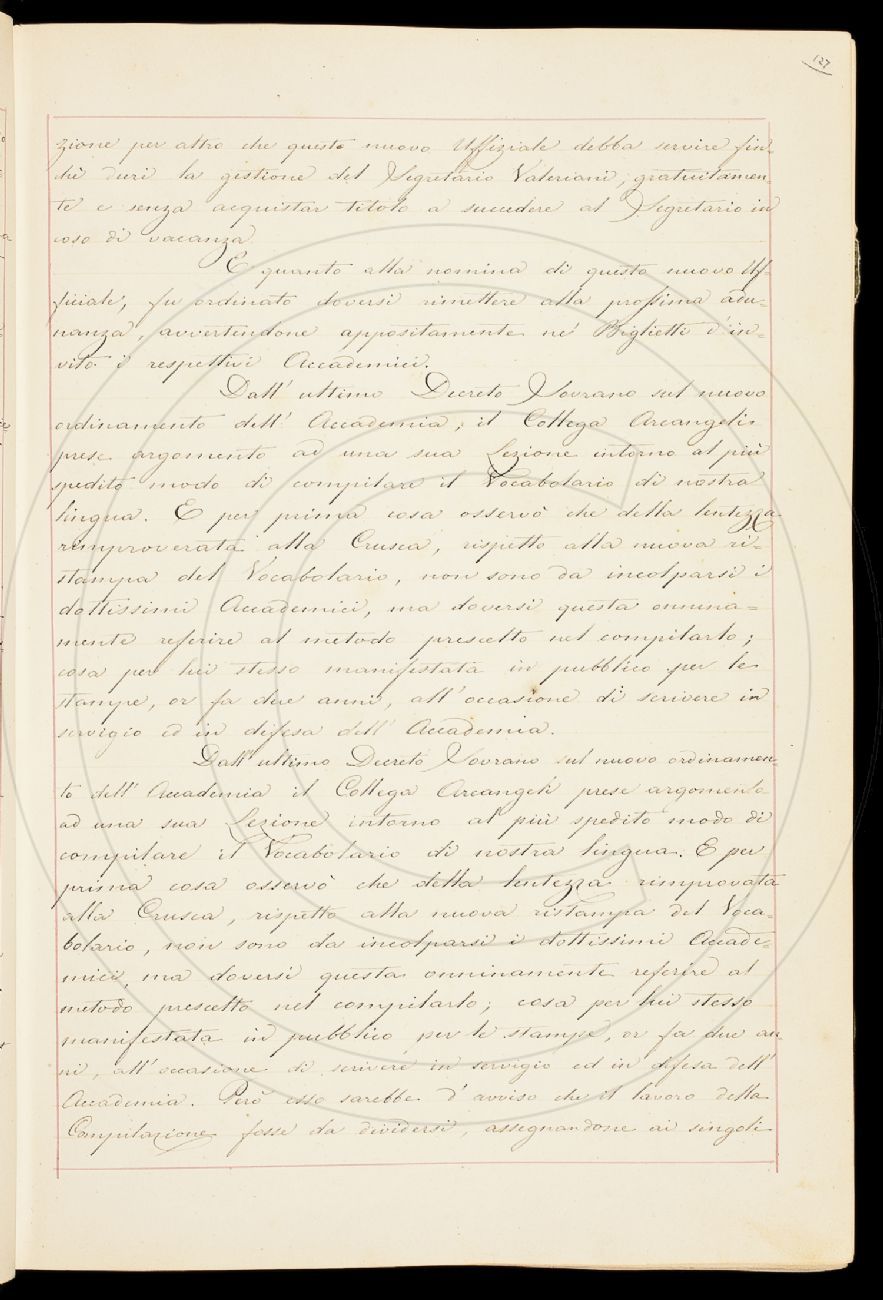 127
zione per altro che questo nuovo Uffiziale debba servire fin-
chè duri la gestione del Segretario Valeriani, gratuitamen-
te e senza acquistar titolo a succedere al Segretario in
caso di vacanza.
E quanto alla nomina di questo nuovo Uf-
ficiale, fu ordinato doversi rimettere alla prossima adu-
nanza, avvertendone appositamente ne' Biglietti d'in-
vito i respettivi Accademici.
Dall' ultimo Decreto Sovrano sul nuovo
ordinamento dell' Accademia, il Collega Arcangeli
prese argomento ad una sua Lezione intorno al più
spedito modo di compilare il Vocabolario di nostra
lingua. E per prima cosa osservò che della lentezza
rimproverata alla Crusca, rispetto alla nuova ri-
stampa del Vocabolario, non sono da incolparsi i
dottissimi Accademici, ma doversi questa onnina-
mente referire al metodo prescelto nel compilarlo;
cosa per lui stesso manifestata in pubblico per le
stampe, or fa due anni, all' occasione di scrivere in
servigio ed in difesa dell' Accademia.
Dall' ultimo Decreto Sovrano sul nuovo ordinamen-
to dell' Accademia il Collega Arcangeli prese argomento
ad una sua Lezione intorno al più spedito modo di
compilare il Vocabolario di nostra lingua. E per
prima cosa osservò che della lentezza rimprovata
alla Crusca, rispetto alla nuova ristampa del Voca-
bolario, non sono da incolparsi i dottissimi Accade-
mici, ma doversi questa onninamente referire al
metodo prescelto nel compilarlo; cosa per lui stesso
manifestata in pubblico per le stampe, or fa due an-
ni, all' occasione di scrivere in servigio ed in difesa dell'
Accademia. Però esso sarebbe d' avviso che il lavoro della
Compilazione fosse da dividersi, assegnandone ai singoli